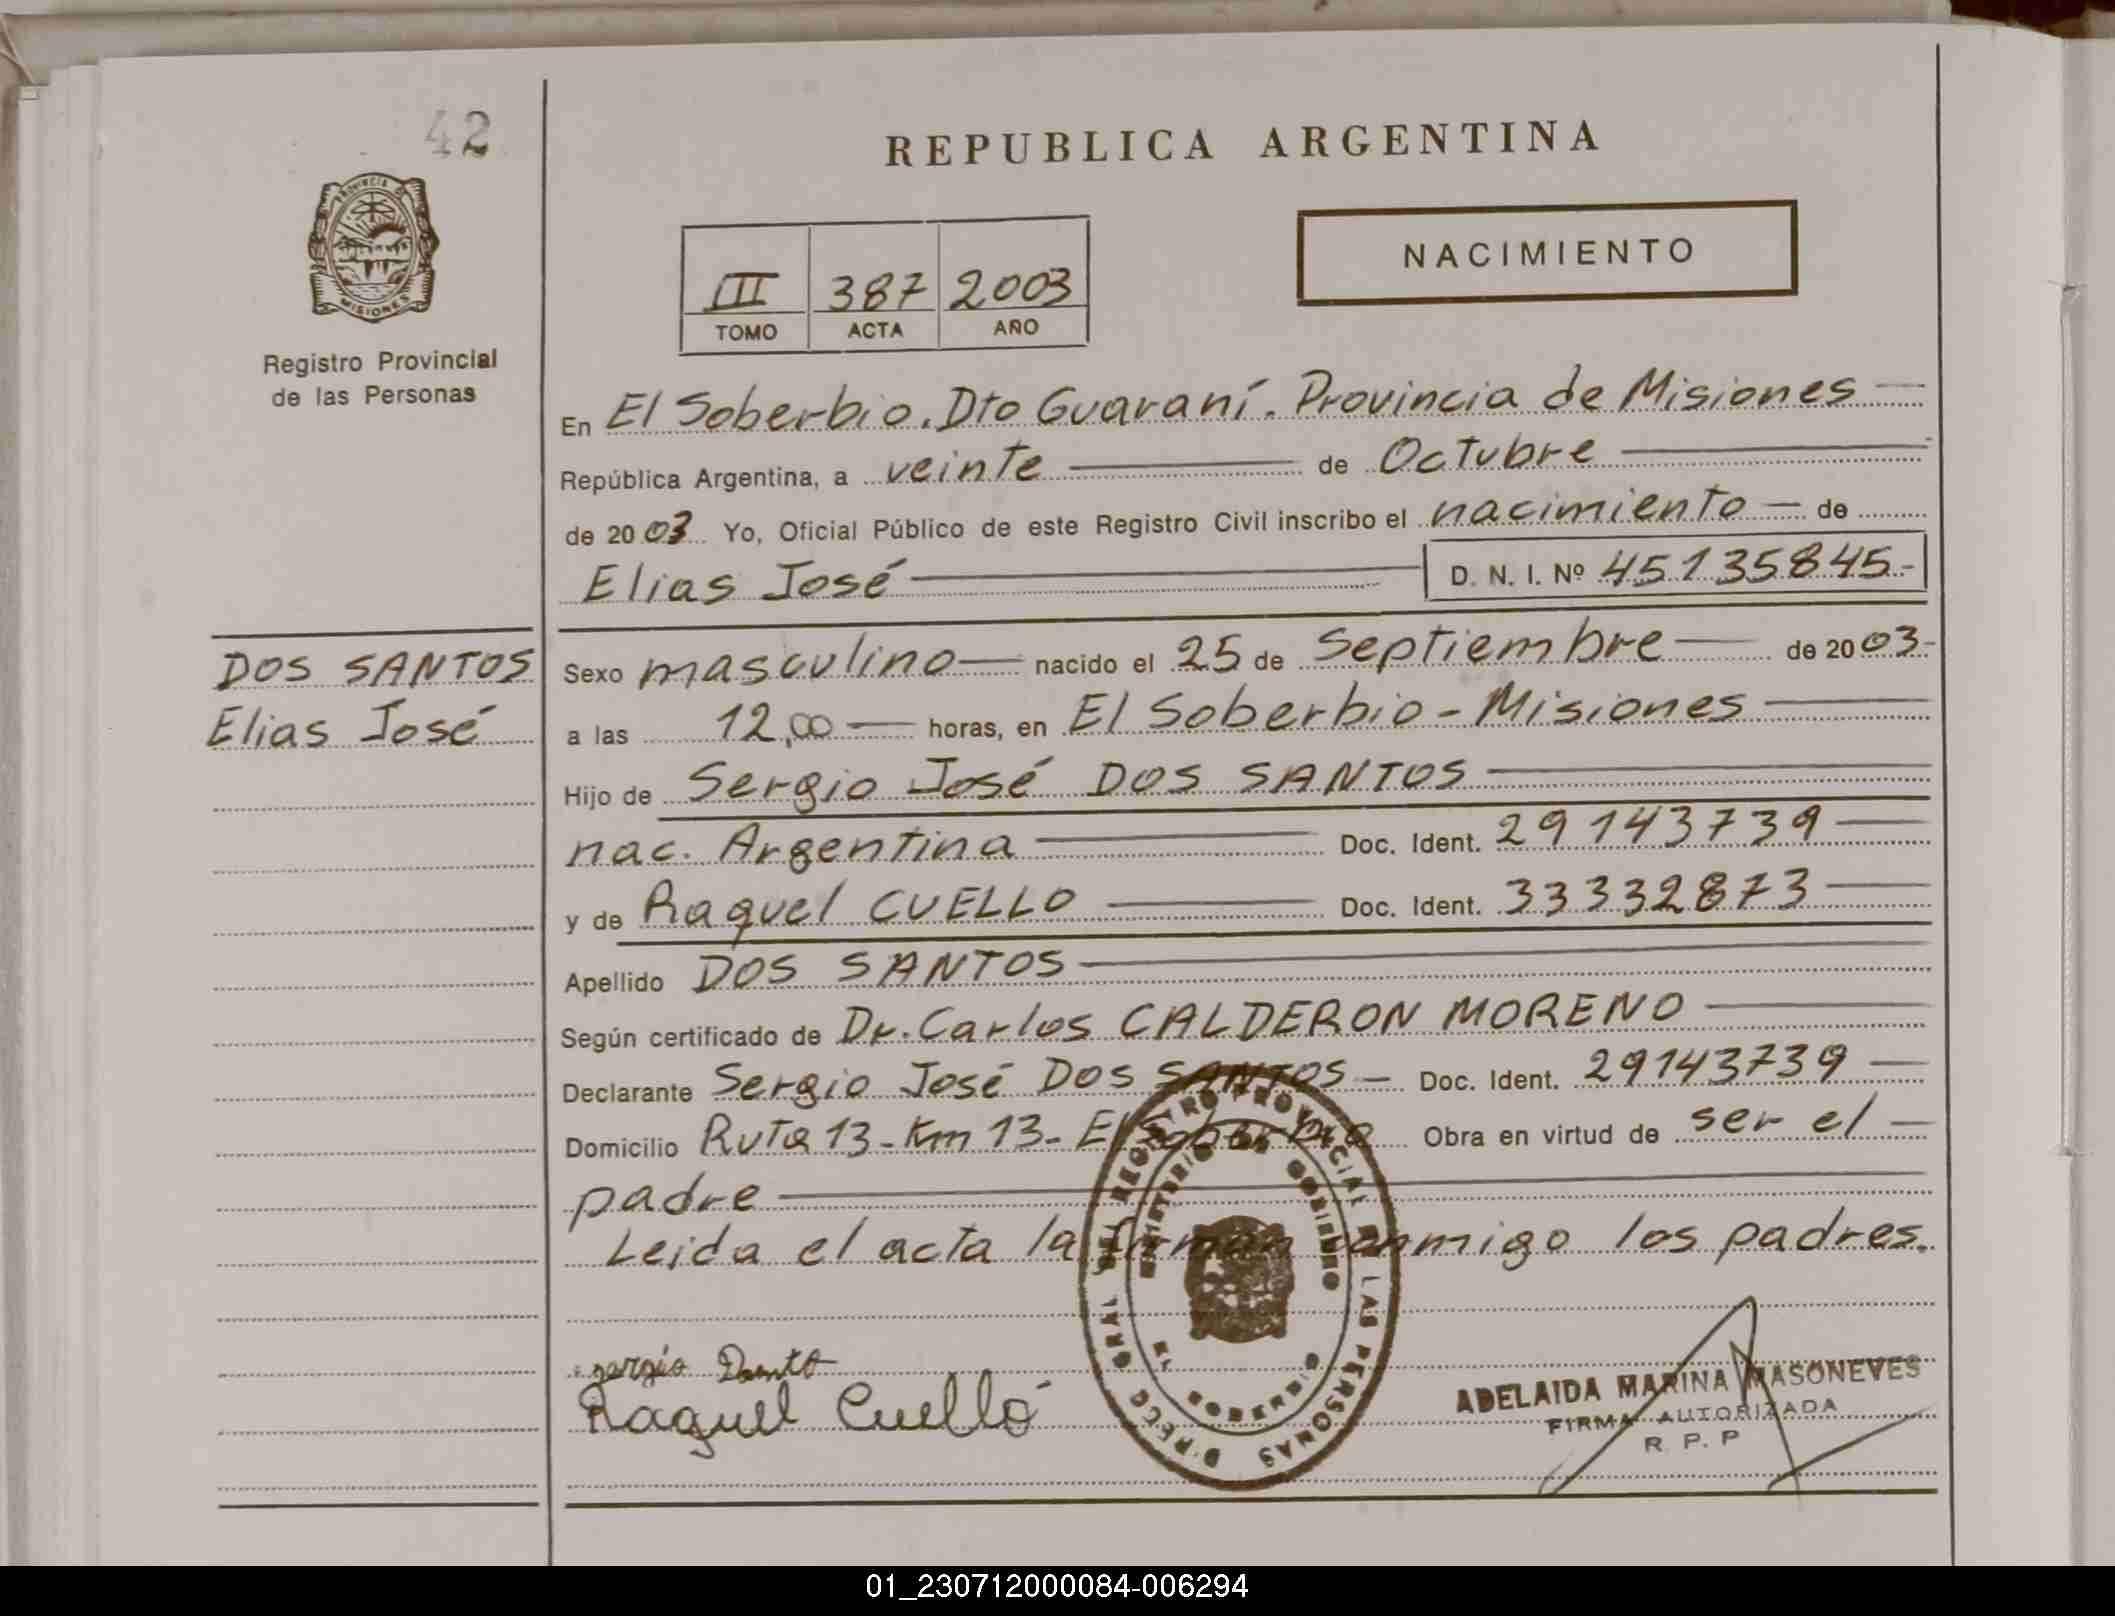 42
REPUBLICA ARGENTINA
PROVINCIA DE
MISIONES
Registro Provincial
de las Personas
III 387 2003
TOMO ACTA AÑO
NACIMIENTO
En El Soberbio. Dto Guaraní. Provincia de Misiones
República Argentina, a veinte de Octubre
de 2003 Yo, Oficial Público de este Registro Civil inscribo el nacimiento de
Elias José D. N. I. Nº 45135845.-
DOS SANTOS
Elias José
Sexo masculino nacido el 25 de Septiembre de 2003-
a las 12,00 horas, en El Soberbio - Misiones
Hijo de Sergio José DOS SANTOS
nac. Argentina Doc. Ident. 29143739
y de Raquel CUELLO Doc. Ident. 33332873
Apellido DOS SANTOS
Según certificado de Dr. Carlos CALDERON MORENO
Declarante Sergio José DOS SANTOS - Doc. Ident. 29143739
Domicilio Ruta 13 - Km 13 - El Soberbio Obra en virtud de ser el
padre
Leida el acta la firman conmigo los padres.
DIRECC GRAL DEL REGISTRO PROVINCIAL DE LAS PERSONAS
MINISTERIO DE GOBIERNO
MISIONES
sergio
Raquel Cuello
ADELAIDA MARINA MASONEVES
FIRMA AUTORIZADA
R. P. P
01_230712000084-006294